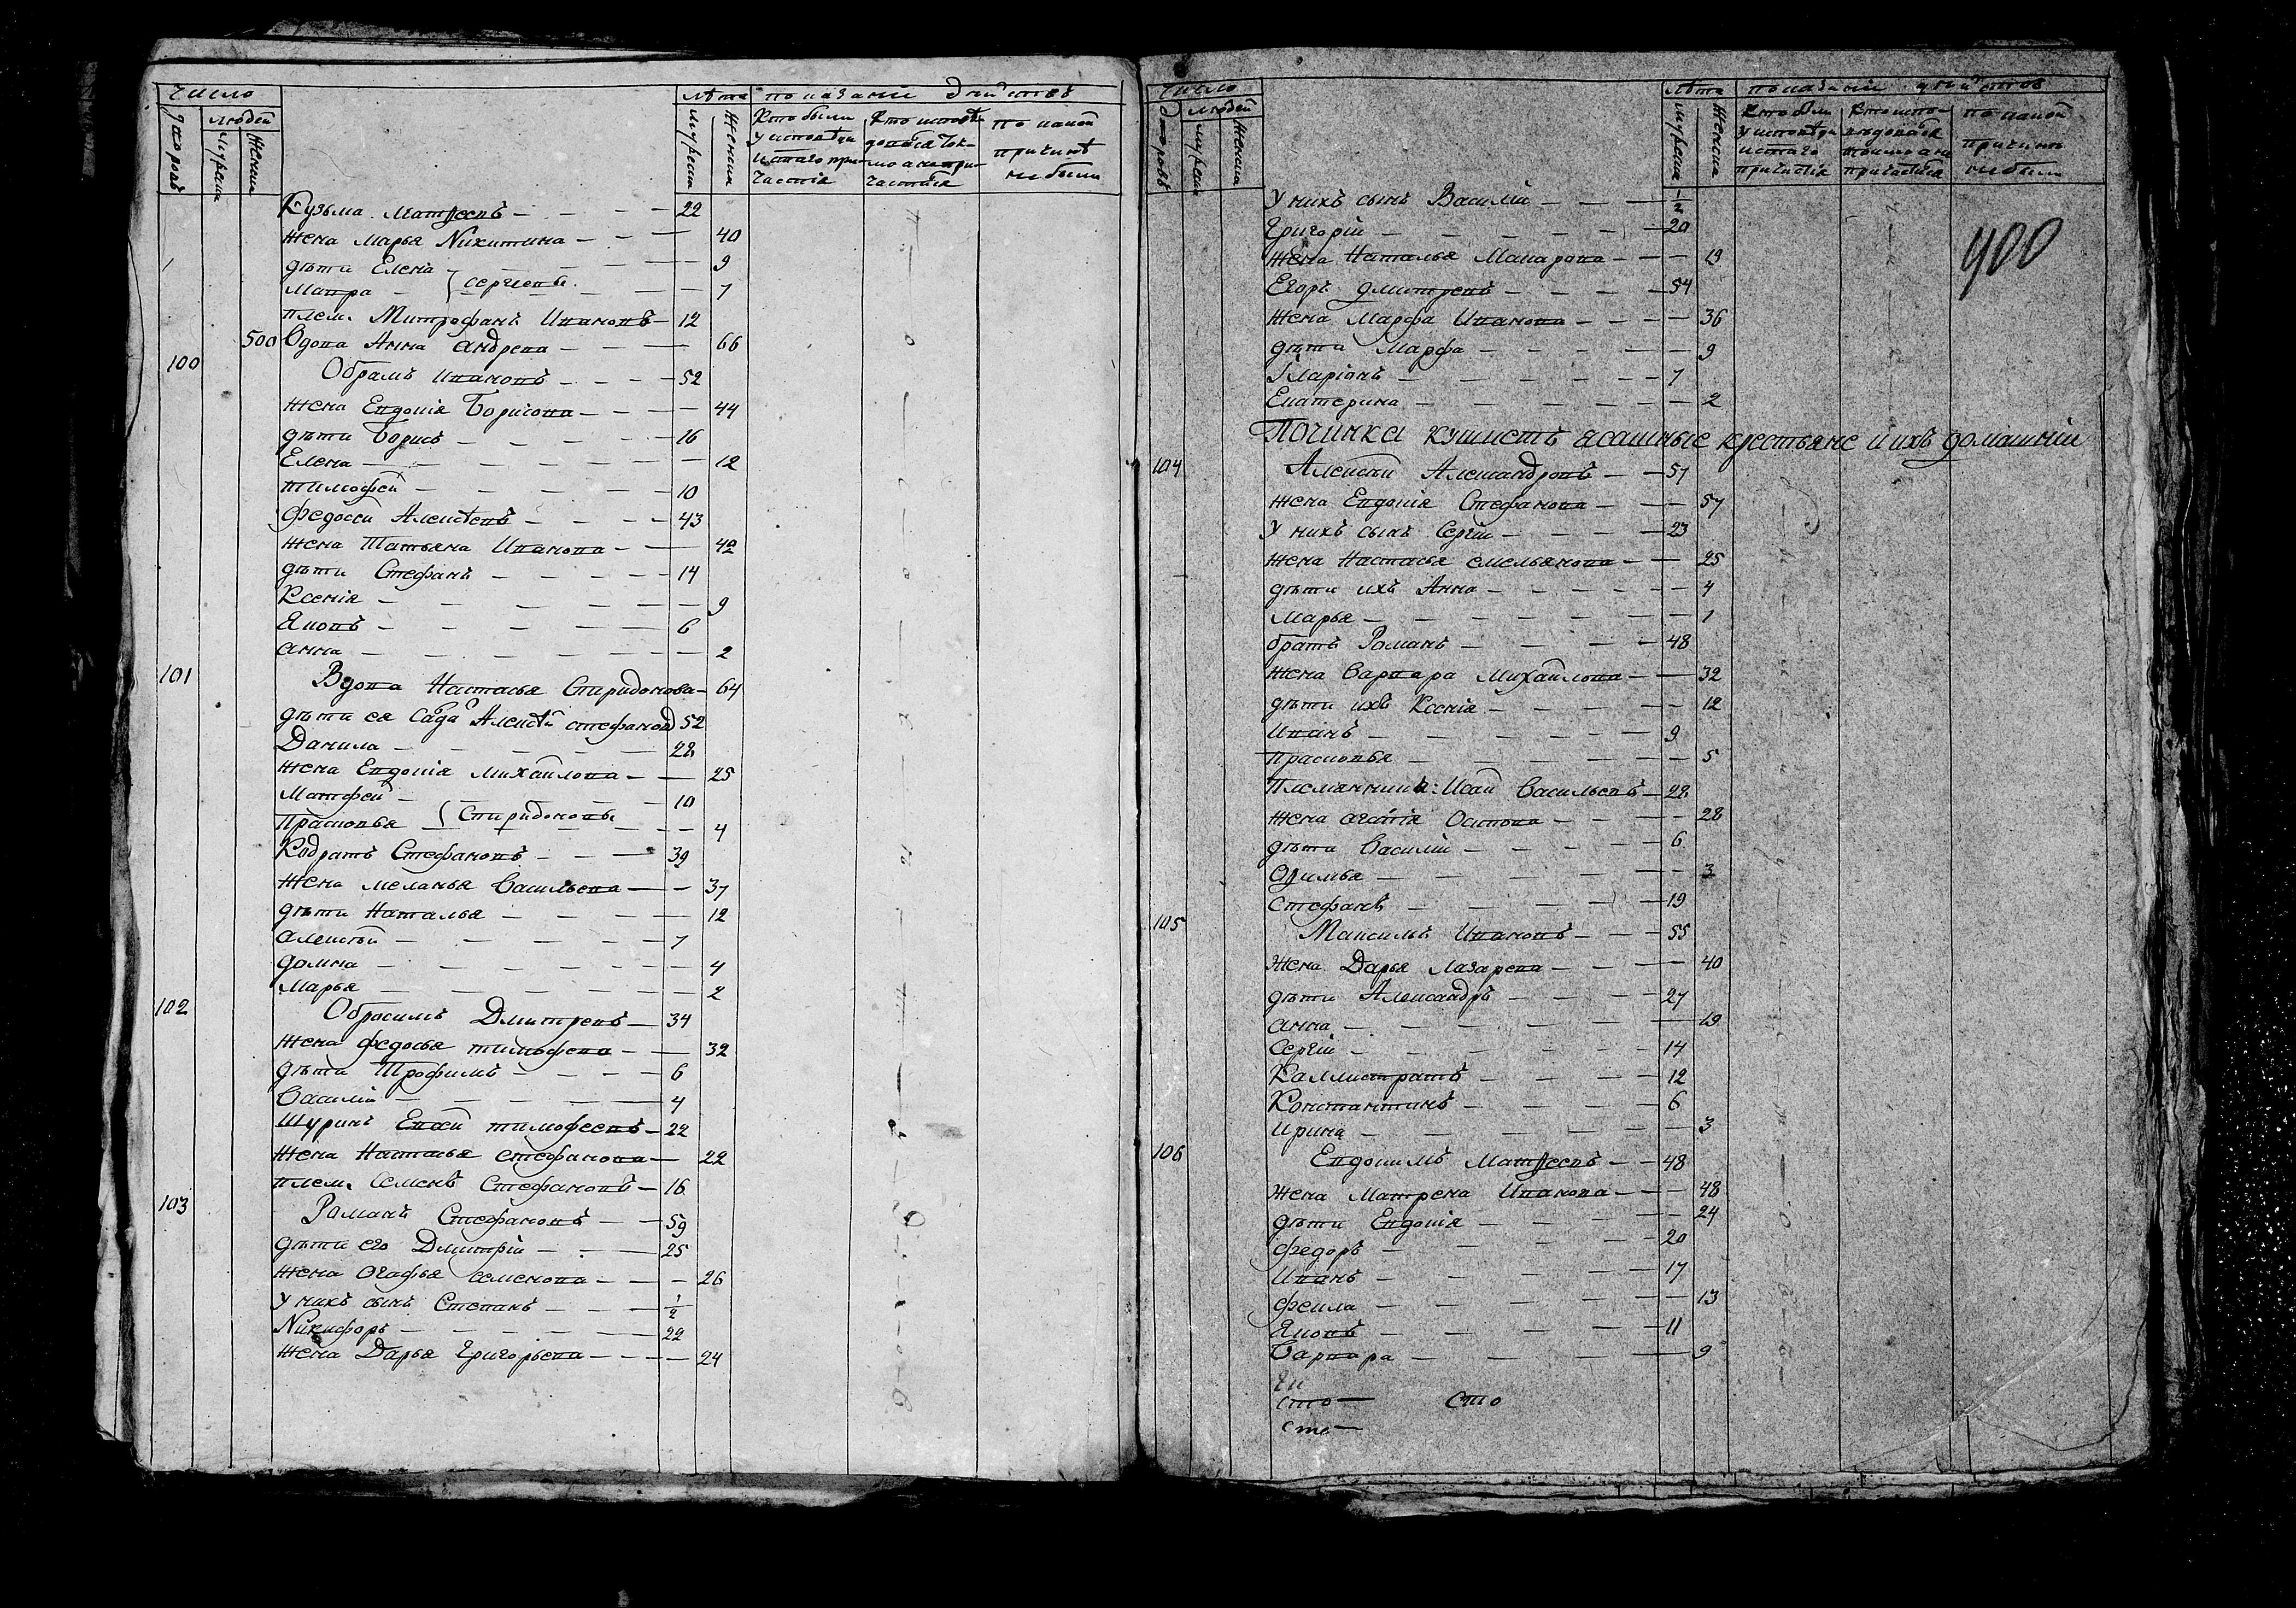 число
лѣта показаніи дѣйствъ
дворовъ
людей
мужеска
женска
мужеска
женска
Кто были у исповѣди и святаго причастія
Кто исповѣдовался токмо а не причастился
по какой причинѣ не были
Кузьма Матвеевъ 22
жена Марья Никитина 40
дѣти Елена 9
Мавра } Сергеевы 7
плем. Митрофанъ Ивановъ 12
500 Вдова Анна Андрева 66
100 Обрамъ Ивановъ 52
жена Евдокія Борисова 44
дѣти Борисъ 16
Елена 12
тимофей 10
Федосей Алексѣевъ 43
жена Татьяна Иванова 42
дѣти Стефанъ 14
Ксенія 9
Яковъ 6
анна 2
101 Вдова Настасья Спиридонова 64
дѣти ея Алексѣй стефановъ 52
Данила 22
жена Евдокія михайлова 25
Матфей 10
Прасковья } Спиридоновы 4
Кодратъ Стефановъ 39
жена меланья Васильева 37
дѣти Наталья 12
алексѣй 7
домна 4
Марья 2
102 Обросимъ Дмитревъ 34
жена федосья тимофева 32
дѣти Трофимъ 6
Василій 4
Шуринъ Евсей тимофеевъ 22
жена Настасья стефанова 22
плем. Семенъ Стефановъ 16
103 Романъ Стефановъ 59
дѣти его Дмитрій 25
жена огафья семенова 26
у нихъ сынъ Степанъ 1/2
Никифоръ 22
жена Дарья Григорьева 24
число
лѣта показаніи дѣйствъ
дворовъ
людей
мужеска
женска
мужеска
женска
Кто были у исповѣди и святаго причастія
Кто исповѣдовался токмо а не причастился
по какой причинѣ не были
У нихъ сынъ Василій 1/2
Григорій 20
жена Наталья Макарова 19
400
Егоръ дмитревъ 54
жена Марфа Иванова 36
дѣти Марфа 9
Іларіонъ 7
Екатерина 2
Починка кушкетъ ясашные крестьяне и ихъ домашніи
104 Алексѣй Александровъ 57
жена Евдокія Стефанова 57
у нихъ сынъ Сергій 23
жена Настасья емельянова 25
дѣти ихъ Анна 4
Марья 1
братъ Романъ 48
жена Варвара Михайлова 32
дѣти ихъ Ксенія 12
Иванъ 9
Прасковья 5
Племянникъ: Исай Васильевъ 22
жена агафія Осипова 28
дѣти Василій 6
3
Стефанъ 19
105 Максимъ Ивановъ 55
жена Дарья Лазарева 40
дѣти Александръ 27
анна 19
Сергій 14
Каллистратъ 12
Константинъ 6
Ирина 3
106 Евдокимъ Матвеевъ 48
жена Матрена Иванова 48
дѣти Евдокія 24
федоръ 20
Иванъ 17
фекла 13
Яковъ 11
Варвара 9
сто сто
сто